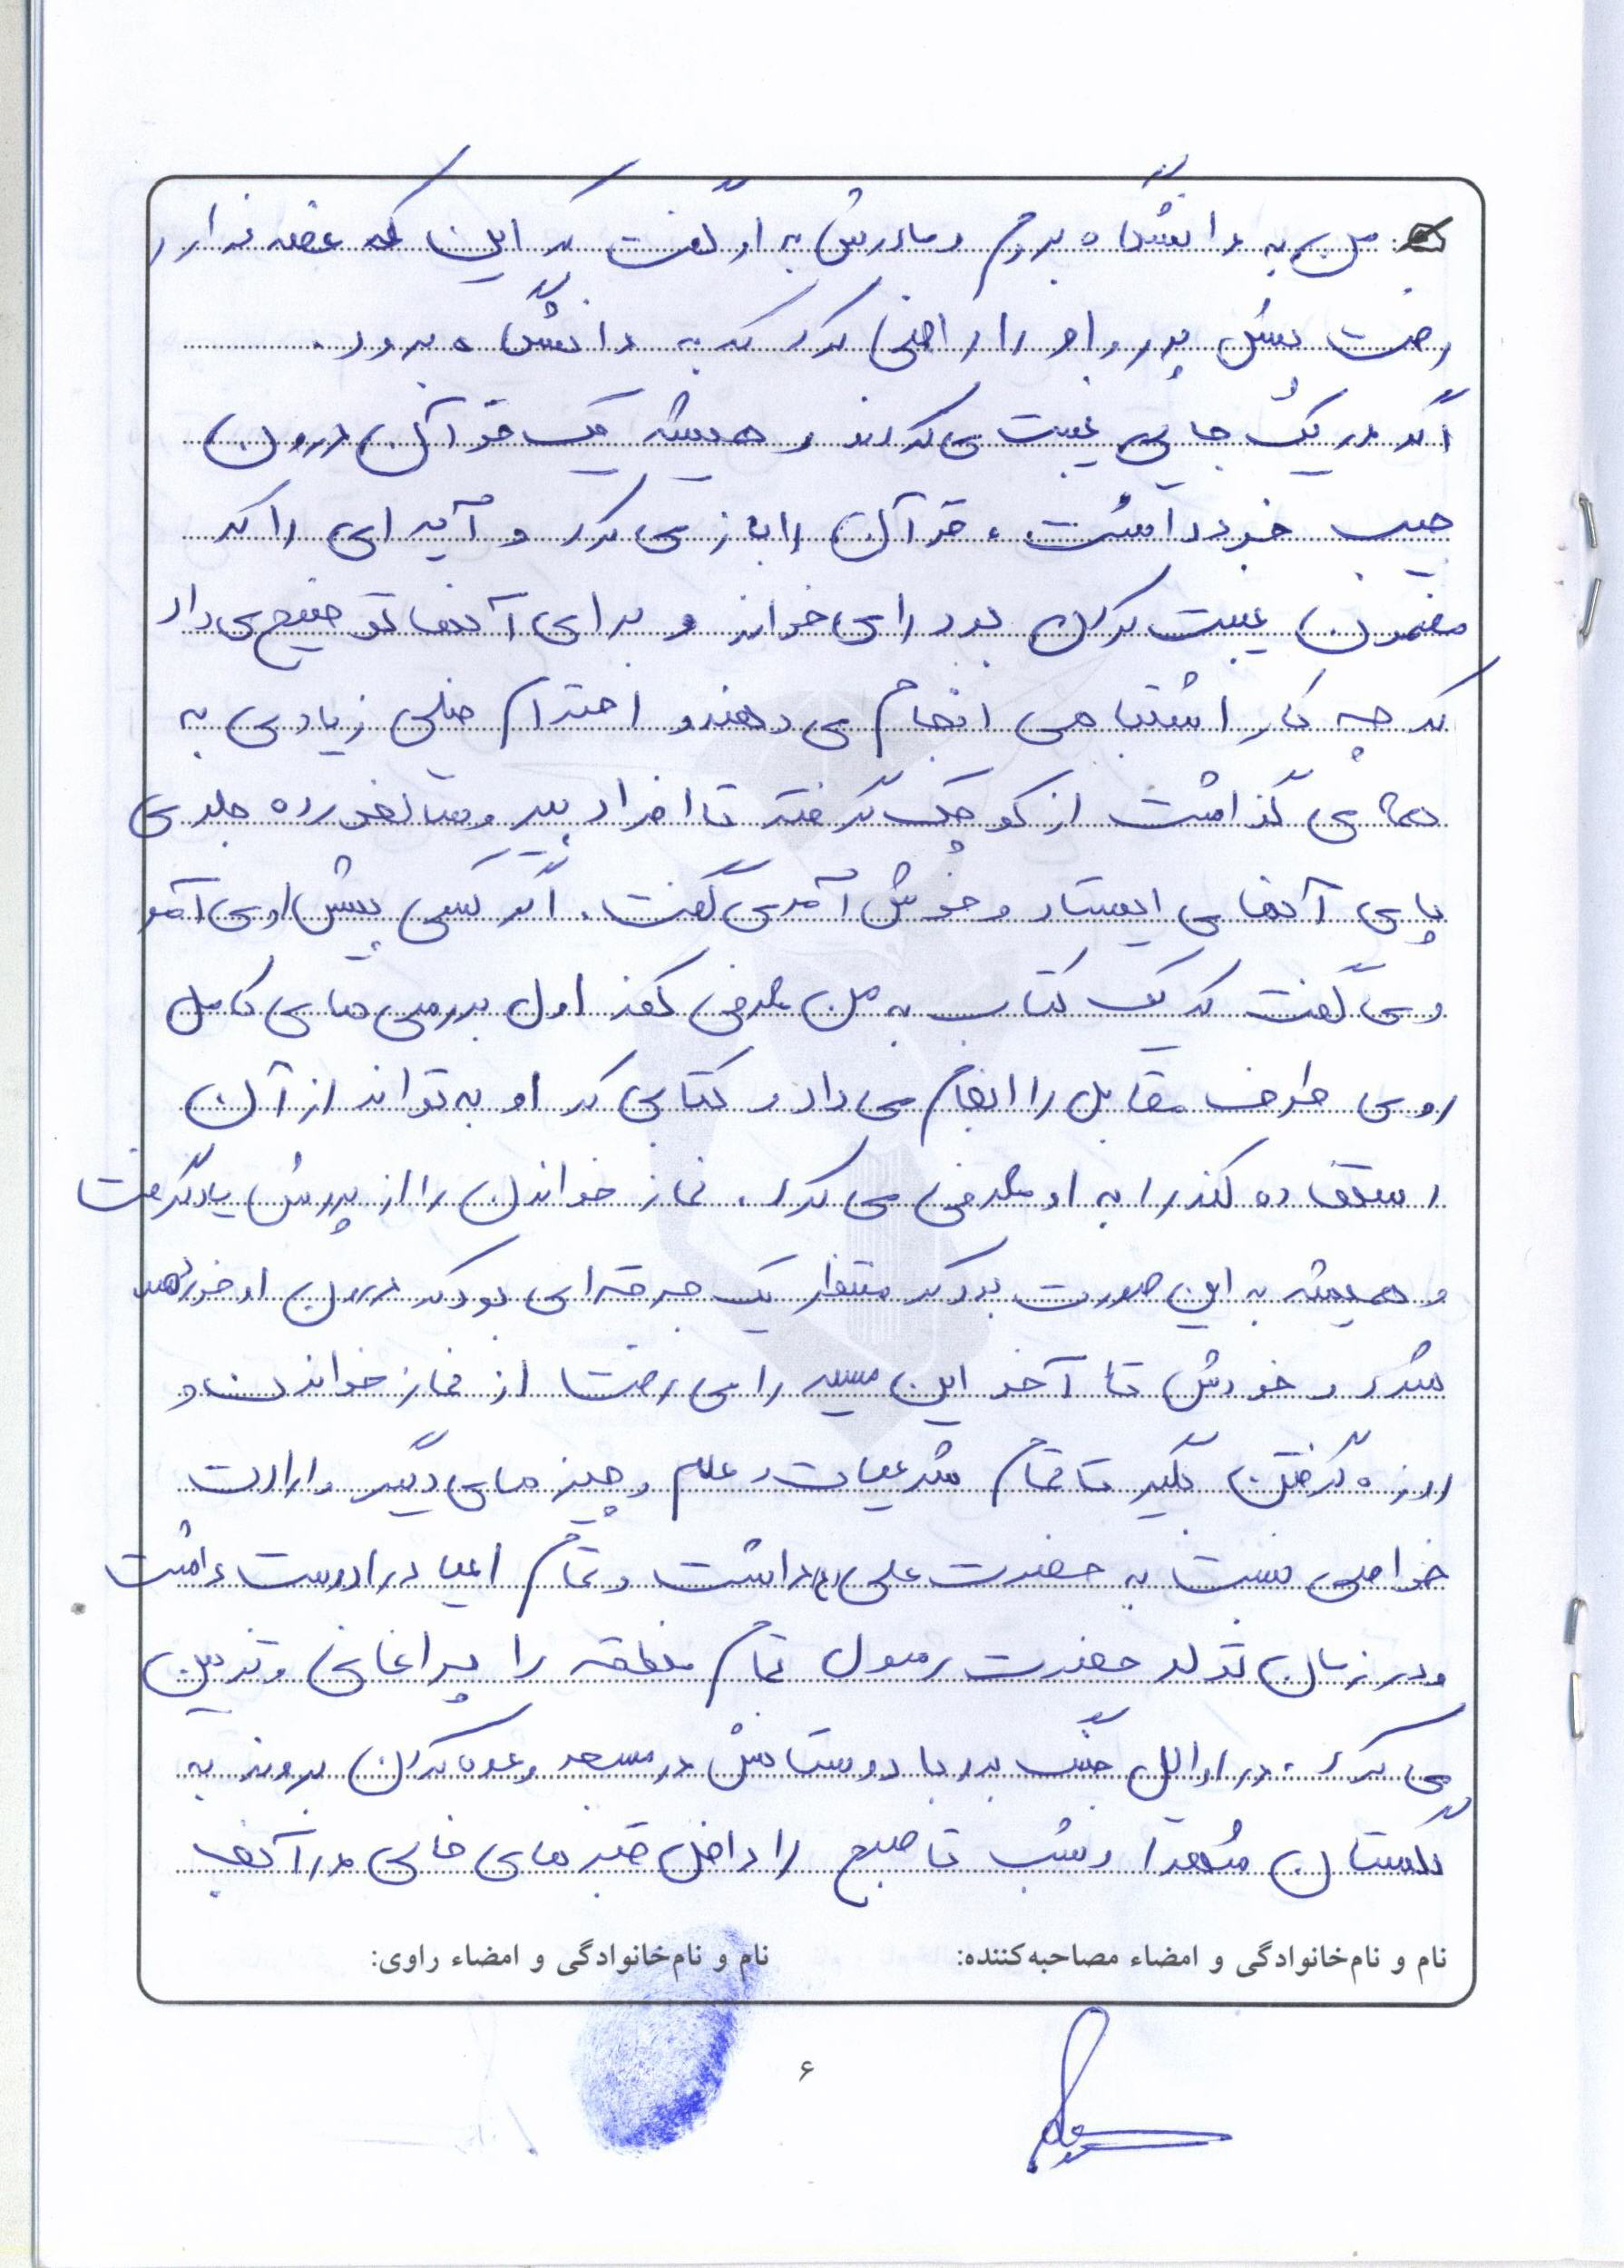 من به دانشگاه بروم و مادرش به او گفت که این که غصه ندارد
رفت پیش پدر و او را راضی کرد که به دانشگاه برود.
اگر در یک جایی غیبت می‌کردند و همیشه یک قرآن درون
جیب خود داشت، قرآن را باز می کرد و آیه ای را که
مضمون غیبت کردن بود را می خواند و برای آنها توضیح می داد
که چه کار اشتباهی انجام می دهند و احترام خیلی زیادی به
همه می گذاشت از کوچک گرفته تا افراد پیر و سالخورده جلوی
پای آنها می ایستاد و خوش آمد می گفت. اگر کسی پیش او می آمد
و می گفت که یک کتاب به من معرفی کند اول بررسی های کامل
روی طرف مقابل را انجام می داد و کتابی که او به تواند از آن
استفاده کند را به او معرفی می کرد. نماز خواندن را از پدرش یاد گرفت
و همیشه به این صورت بود که منتظر یک جرقه ای بود که درون او خورده
شد و خودش تا آخر این مسیر را می رفت از نماز خواندن و
روزه گرفتن بگیر تا تمام شرعیات و علم و چیز های دیگر و ارادت
خواصی نسبت به حضرت علی (ع) داشت و تمام اعیاد را دوست داشت
و در زمان تولد حضرت رسول تمام منطقه را چراغانی و تزیین
می کرد، در اوایل جنگ بود با دوستانش در مسجد وعده کردن بروند به
گلستان شهدا و شب تا صبح را داخل قبر های خالی در آنجا
نام و نام‌خانوادگی و امضاء مصاحبه‌کننده:
نام و نام‌خانوادگی و امضاء راوی:
۶